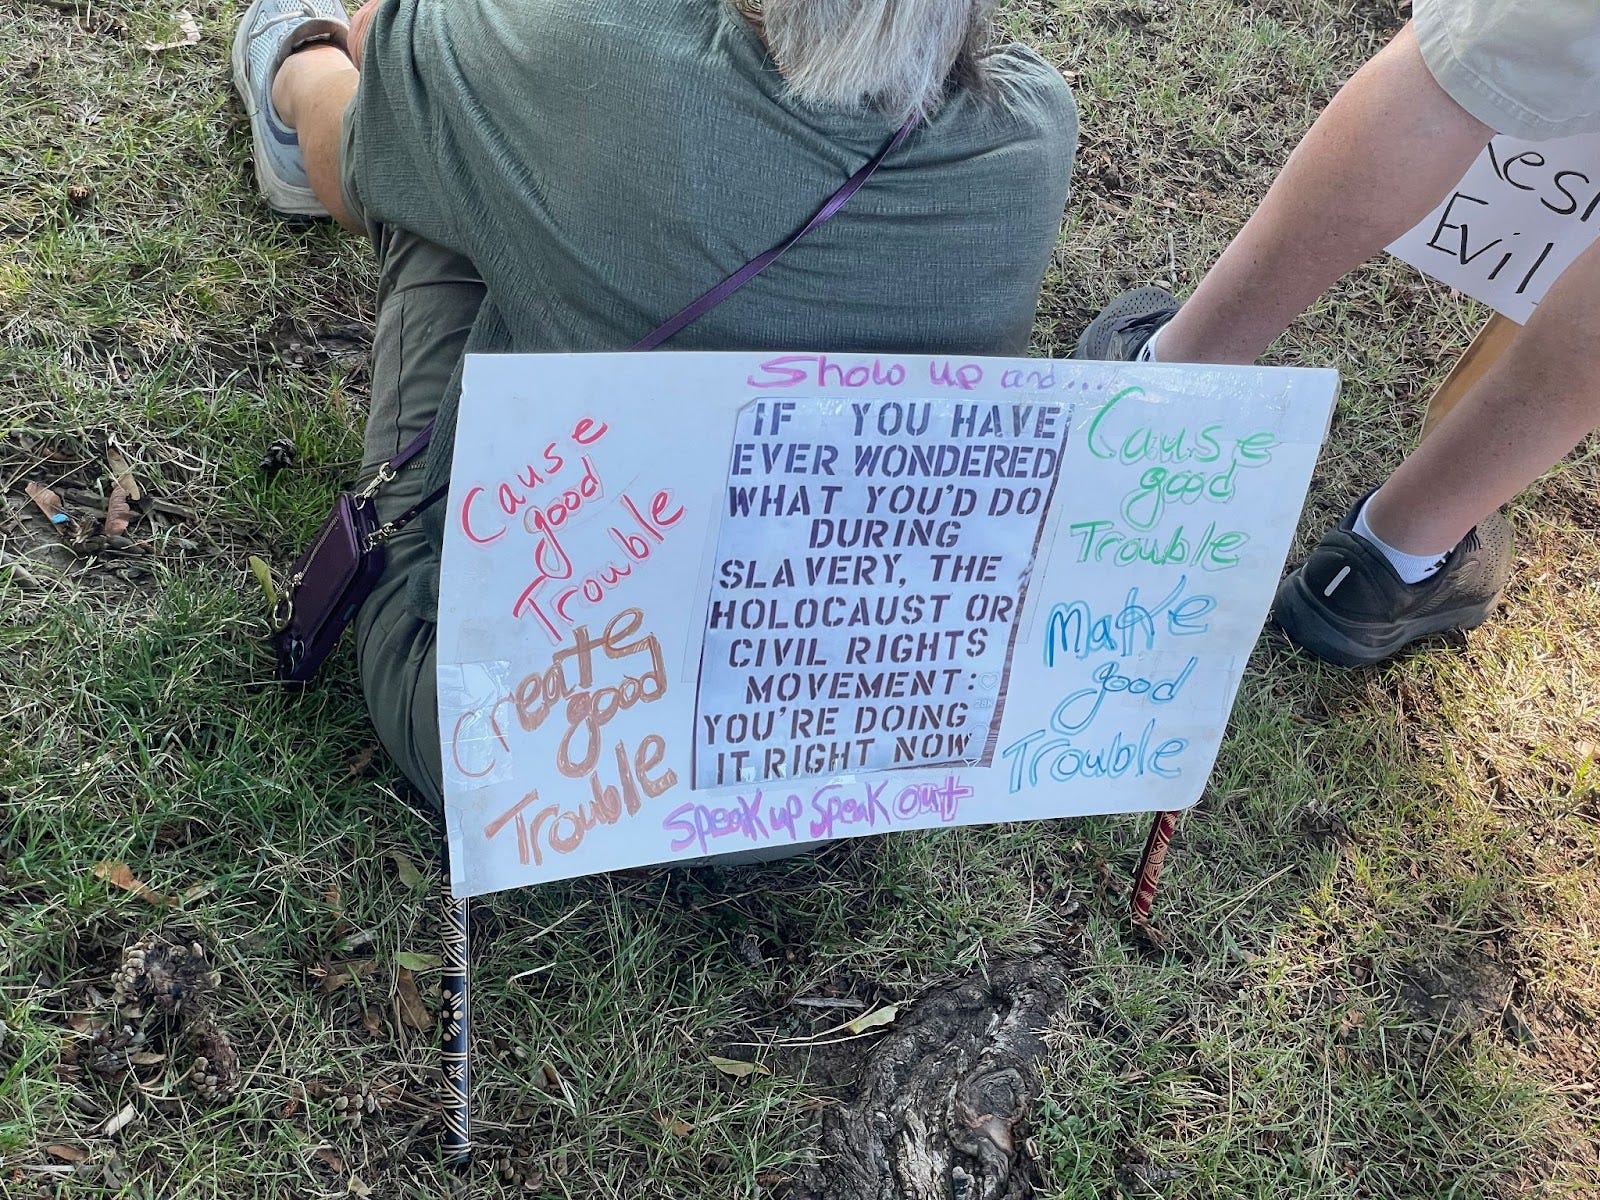 Show up and....
Cause
good
Trouble
Create
good
Trouble
IF YOU HAVE
EVER WONDERED
WHAT YOU'D DO
DURING
SLAVERY, THE
HOLOCAUST OR
CIVIL RIGHTS
MOVEMENT:
YOU'RE DOING
IT RIGHT NOW
28K
Cause
good
Trouble
Make
good
Trouble
Speak up Speak out
Evil